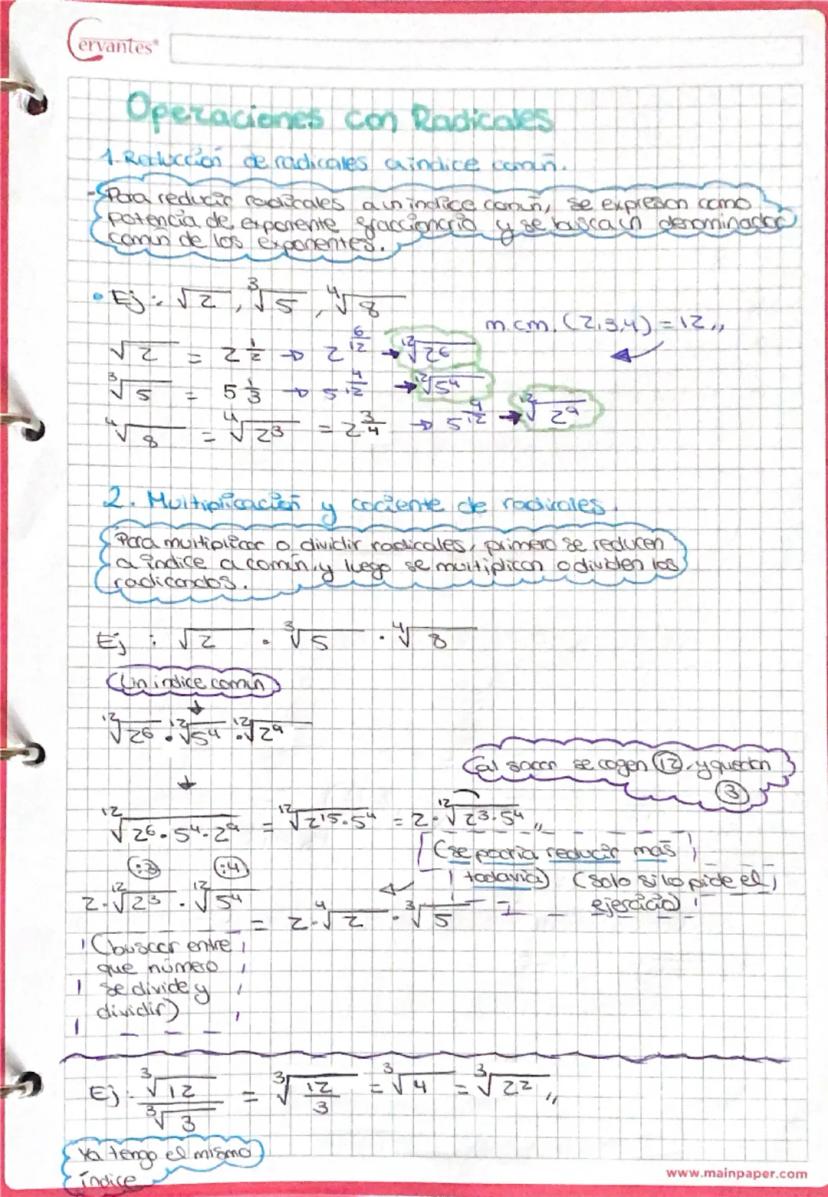 Cervantes®
Operaciones con Radicales
1. Reducción de radicales a indice comuñ.
- Para reducir radicales a un indice comuñ, se expresan como
potencia de exponente fraccionario y se busca un denominador
común de los exponentes.
• Ej: √2, ∛5, ∜8
m.c.m. (2,3,4) = 12,,
√2 = 2^(1/2) → 2^(6/12) → ¹²√2⁶
∛5 = 5^(1/3) → 5^(4/12) → ¹²√5⁴
∜8 = ∜2³ = 2^(3/4) → 5^(9/12) → ¹²√2⁹
2. Multiplicación y cociente de radicales.
Para multiplicar o dividir radicales, primero se reducen
a índice a común, y luego se multiplican o dividen los
radicandos.
Ej: √2 · ∛5 · ∜8
Un indice comun
↓
¹²√2⁶ · ¹²√5⁴ · ¹²√2⁹
↓
(al sacar se cogen 12, y quedan
3)
¹²√(2⁶·5⁴·2⁹) = ¹²√(2¹⁵·5⁴) = 2·¹²√(2³·5⁴),,
(se podría reducir mas
todavía) (solo si lo pide el
ejercicio)
:3 :4
2·¹²√2³ · ¹²√5⁴ = 2·∜2 · ∛5
(buscar entre
que número
se divide y
dividir)
Ej: ∛12 / ∛3 = ∛(12/3) = ∛4 = ∛2²,,
Ya tengo el mismo
índice
www.mainpaper.com